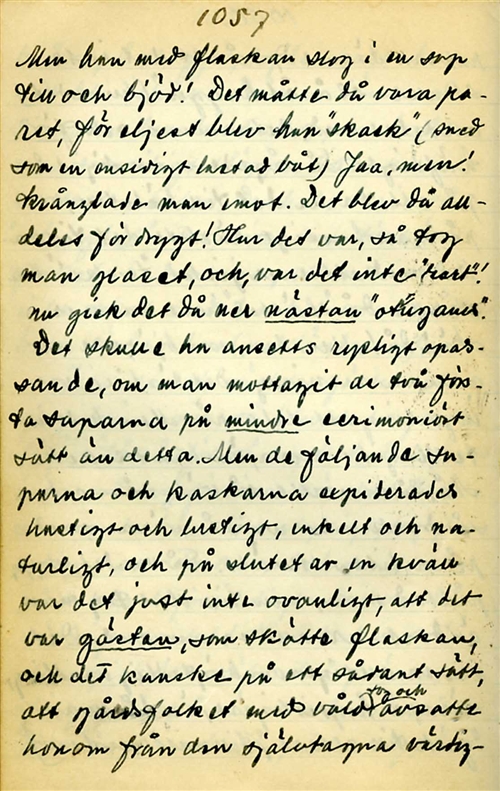 1057
Men han med flaskan slog i en sup
till och bjöd! Det måtte då vara pa-
ret, för eljest blev han "skack" (sned
som en ensidigt lastad båt) Jaa, men!
krånglade man emot. Det blev då all-
deles för drygt! Hur det var, så tog
man glaset, och, var det inte "rart"!
nu gick det då ner nästan
Det skulle ha ansetts rysligt opas-
sande, om man mottagit de två förs-
ta suparna på mindre cerimoniöst
sätt än detta. Men de följande su-
parna och kaskarna expiderades
hastigt och lustigt, enkelt och na-
turligt, och på slutet av en kväll
var det just inte ovanligt, att det
var gästan, som skötte flaskan,
och det kanske på ett sådant sätt,
att gårdsfolket med våld tog och avsatte
honom från den självtagna värdig-